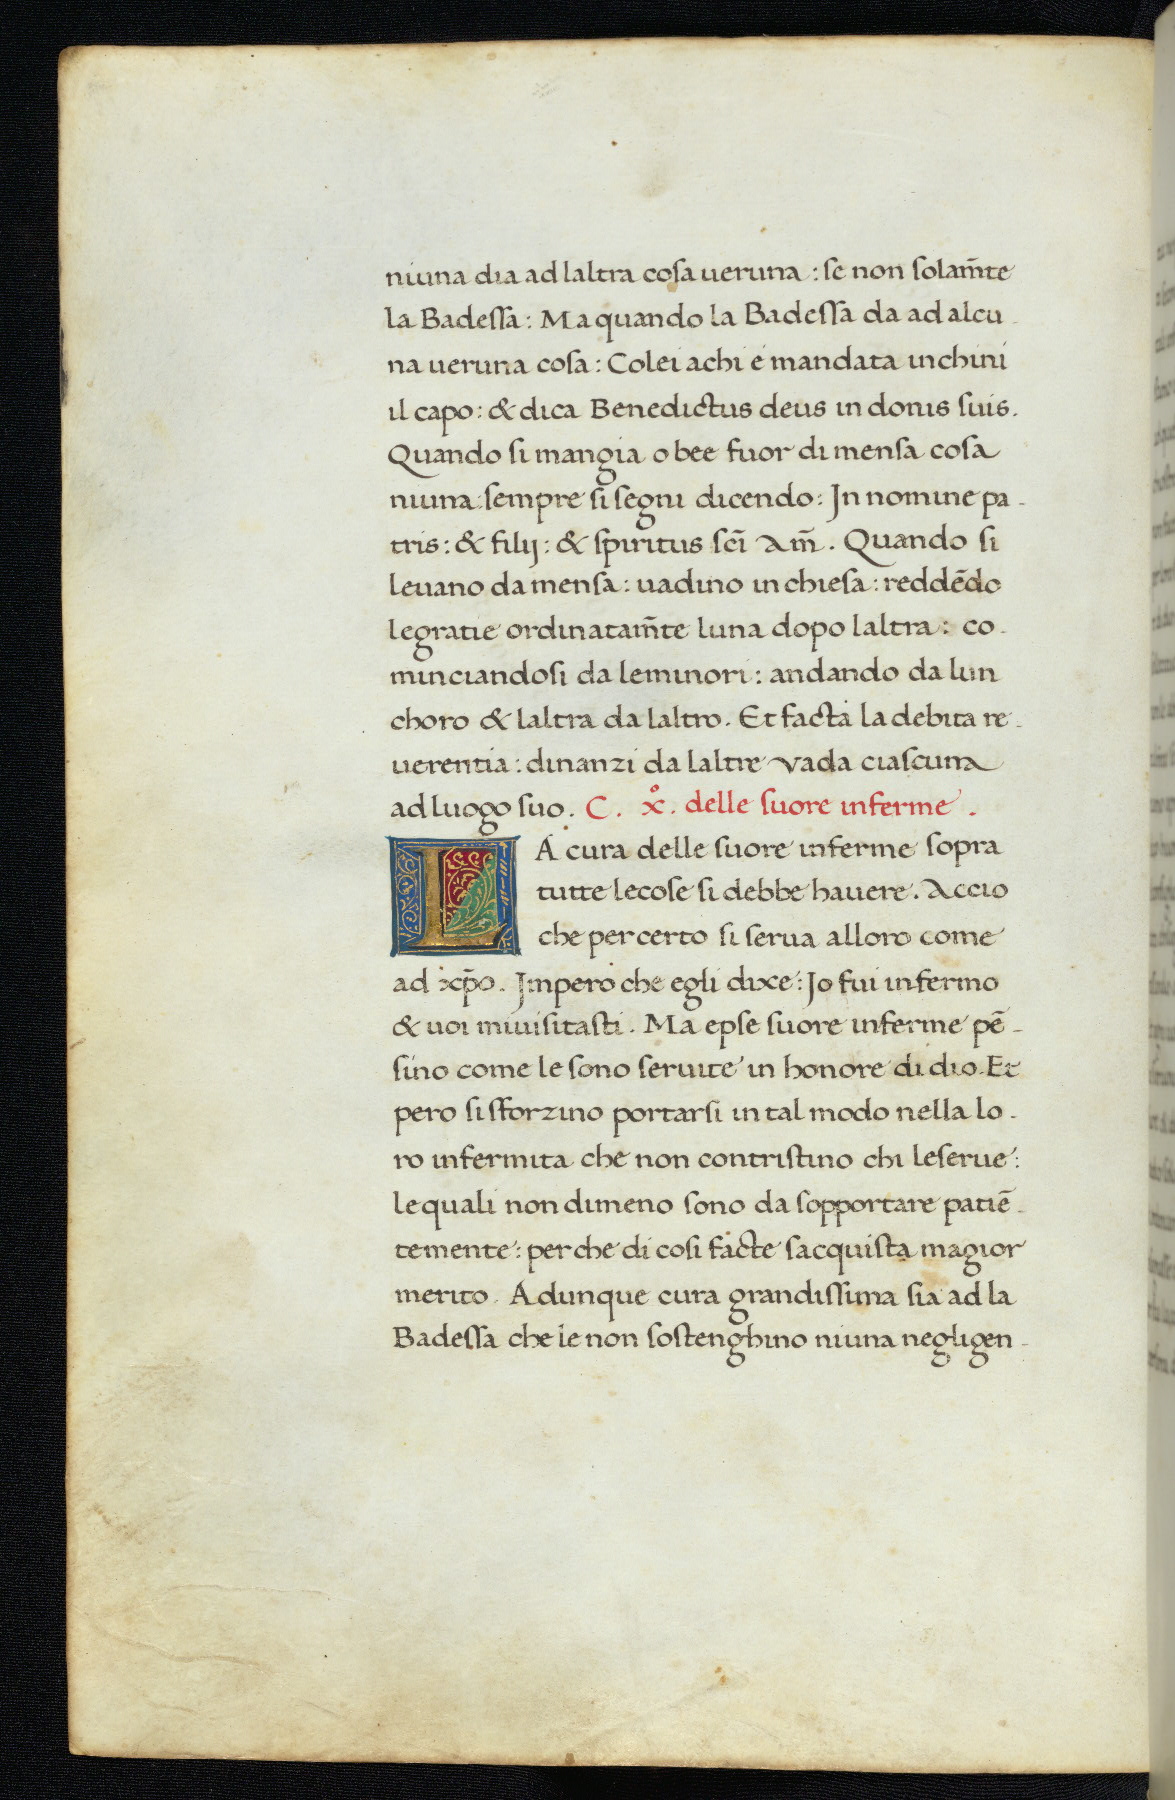 niuna dia ad laltra cosa ueruna : se non solam̃te
la Badessa : Ma quando la Badessa da ad alcu-
na ueruna cosa : Colei achi e mandata inchini
il capo : & dica Benedictus deus in donis suis.
Quando si mangia o bee fuor di mensa cosa
niuna sempre si segni dicendo : In nomine pa-
tris : & filij : & spiritus sc̃i Am̃. Quando si
leuano da mensa : uadino in chiesa : reddẽdo
legratie ordinatam̃te luna dopo laltra : co-
minciandosi da leminori : andando da lun
choro & laltra da laltro. Et facta la debita re-
uerentia : dinanzi da laltre vada ciascuna
ad luogo suo. C. x̊. delle suore inferme.
LA cura delle suore inferme sopra
tutte lecose si debbe hauere. Accio
che percerto si serua alloro come
ad xp̃o. Impero che egli dixe : Io fui infermo
& uoi miuisitasti. Ma epse suore inferme pẽ-
sino come le sono seruite in honore di dio. Et
pero si sforzino portarsi in tal modo nella lo-
ro infermita che non contristino chi leserue :
lequali non dimeno sono da sopportare patiẽ-
temente : perche di cosi facte sacquista magior
merito. Adunque cura grandissima sia ad la
Badessa che le non sostenghino niuna negligen-